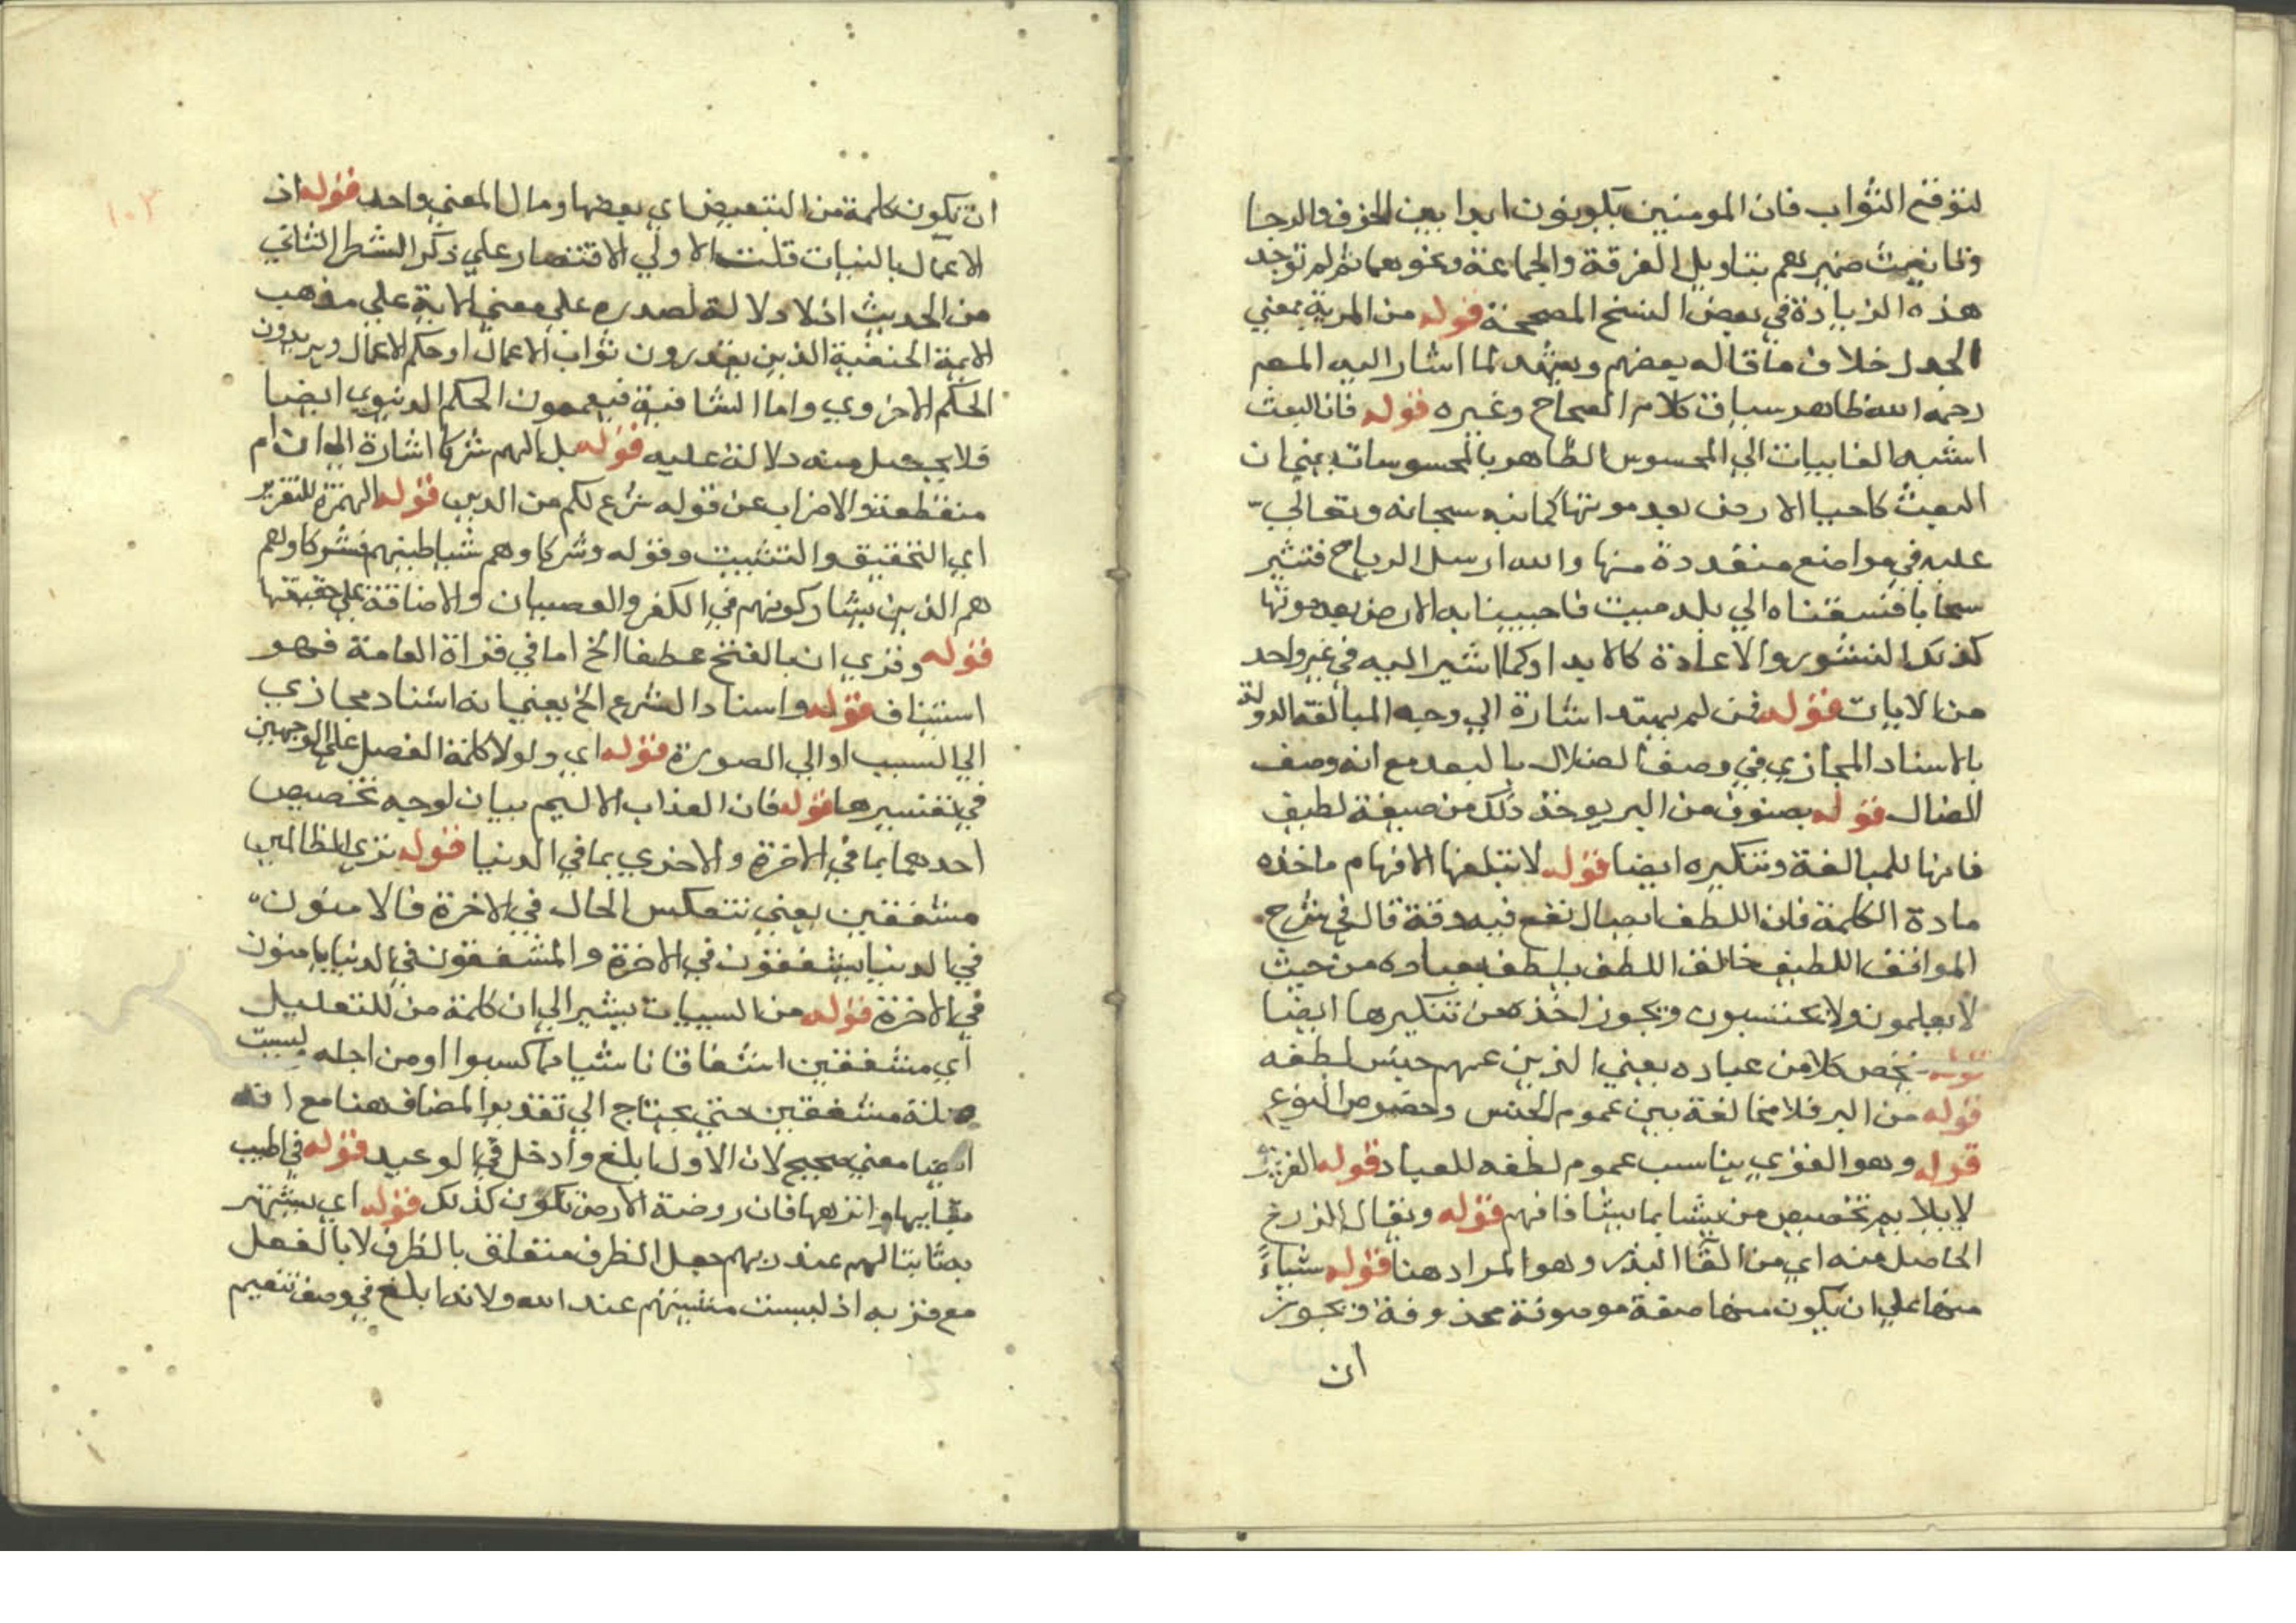 لتوقع الثواب فان المومنين يكونون ابدا بين الخوف والرجا
وتانيث ضميرهم بتاويل الفرقة والجماعة ونحوهما ثم لم توجد
هذه الزيادة في بعض النسخ المصححة قوله من المرية بمعني
الجدل خلاف ما قاله بعضهم ويشهد لما اشار اليه المصم
رحمه الله ظاهر سياق كلام الصحاح وغيره قوله فان البعث
اشبه الغايبات الي المحسوس الظاهر بالمحسوسات يعني ان
البعث كاحيا الارض بعد موتها كما نبه سبحانه وتعالي
عليه في مواضع متعددة منها والله ارسل الرياح فتثير
سحابا فسقناه الي بلد ميت فاحيينا به الارض بعد موتها
كذلك النشور والاعادة كالابدا وكما اشير اليه في غير واحد
من الايات قوله فمن لم يهتد اشارة الي وجه المبالغة المدلولة
بالاسناد المجازي في وصف الضلال بالبعد مع انه وصف
الضال قوله بصنوف من البر يوخذ ذلك من صيغة لطيف
فانها للمبالغة وتنكيره ايضا قوله لا تبلغها الافهام ماخذه
مادة الكلمة فان اللطف ايصال نفع فيه دقة قال في شرح
المواقف اللطيف خالف اللطف يلطف بعباده من حيث
لا يعلمون ولا يحتسبون ويجوز اخذه من تنكيرها ايضا
قوله يخص كلا من عباده يعني الذين عمهم جنس لطفه
قوله من البر فلا مخالفة بين عموم الجنس وخصوص النوع
قوله وهو القوي يناسب عموم لطفه للعباد قوله العزيز
لا يلايم تخصيص من يشا بما يشا فافهم قوله ويقال للزرع
الحاصل منه اي من القا البذر وهو المراد هنا قوله شياءً
منها علي ان يكون منها صفة موصوفة محذوفة ويجوز
ان
١٠٣
ان تكون كلمة من التبعيض اي بعضها ومال المعني واحد قوله اذ
الاعمال بالنيات قلت الاولي الاقتصار علي ذكر الشطر الثاني
من الحديث اذ لا دلالة لصدره علي معني الاية علي مذهب
الايمة الحنفية الذين يقدرون ثواب الاعمال او حكم الاعمال ويريدون
الحكم الاخروي واما الشافية فيعممون الحكم الدنيوي ايضا
فلا يحصل منه دلالة عليه قوله بل الهم شركا اشارة الي ان ام
منقطعة والاضراب عن قوله شرع لكم من الدين قوله الهمزة للتقرير
اي التحقيق والتثبيت وقوله وشركاوهم شياطينهم فشركاولهم
هم الذين يشاركونهم في الكفر والعصيان والاضافة علي حقيقتها
قوله وقري ان بالفتح عطفا الخ اما في قراة العامة فهو
استيناف قوله واسناد الشرع الخ يعني انه اسناد مجازي
الي السبب او الي الصورة قوله اي ولولا كلمة الفصل علي الوجهين
في تفسيرها قوله فان العذاب الاليم بيان لوجه تخصيص
احدهما بما في الاخرة والاخري بما في الدنيا قوله تري الظالمين
مشفقين يعني تتعكس الحال في الاخرة فالامنون
في الدنيا يشفقون في الاخرة والمشفقون في الدنيا يامنون
في الاخرة قوله من السييات يشير الي ان كلمة من للتعليل
اي مشفقين اشفاقا ناشيا مما كسبوا او من اجله ليست
صلة مشفقين حتي يحتاج الي تقدير المضاف هنا مع انه
ايضا معني صحيح لان الاول ابلغ وادخل في الوعيد قوله في اطيب
بقايها وانزهها فان روضة الارض تكون كذلك قوله اي يشتهر
به ثابتا لهم عند ربهم جعل الظرف متعلق بالظرف لا بالفعل
مع قربه اذ ليست مشيتهم عند الله ولانه ابلغ في وصف تنعيم